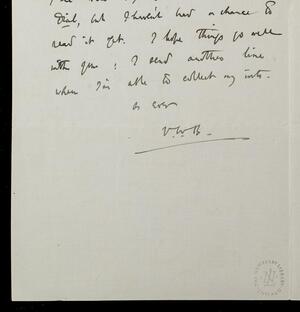 Dial, but I haven't had a chance to
read it yet. I hope things go well
with you; I send another line
when I'm able to collect my wits.
as ever
V.W.B.
THE NEWBERRY LIBRARY